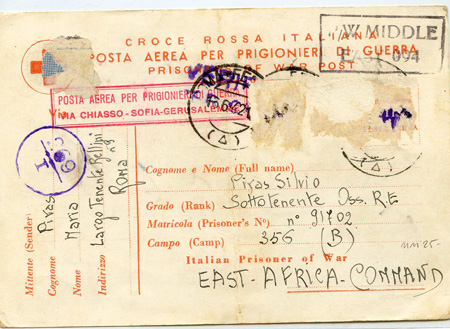 CROCE ROSSA ITALIANA
POSTA AEREA PER PRIGIONIERI DI GUERRA
PRISONER OF WAR POST
P/W MIDDLE
EAST 094
POSTA AEREA PER PRIGIONIERI DI GUERRA
VIA CHIASSO-SOFIA-GERUSALEMME
Mittente (Sender
Cognome Piras
Nome Maria
Indirizzo Largo Tenente Bellini
Roma
Cognome e Nome (Full name) Piras Silvio
Grado (Rank) Sottotenente Oss. R.E
Matricola (Prisoner's No) n° 91702
Campo (Camp) 356 (B)
Italian Prisoner of War
EAST-AFRICA-COMMAND